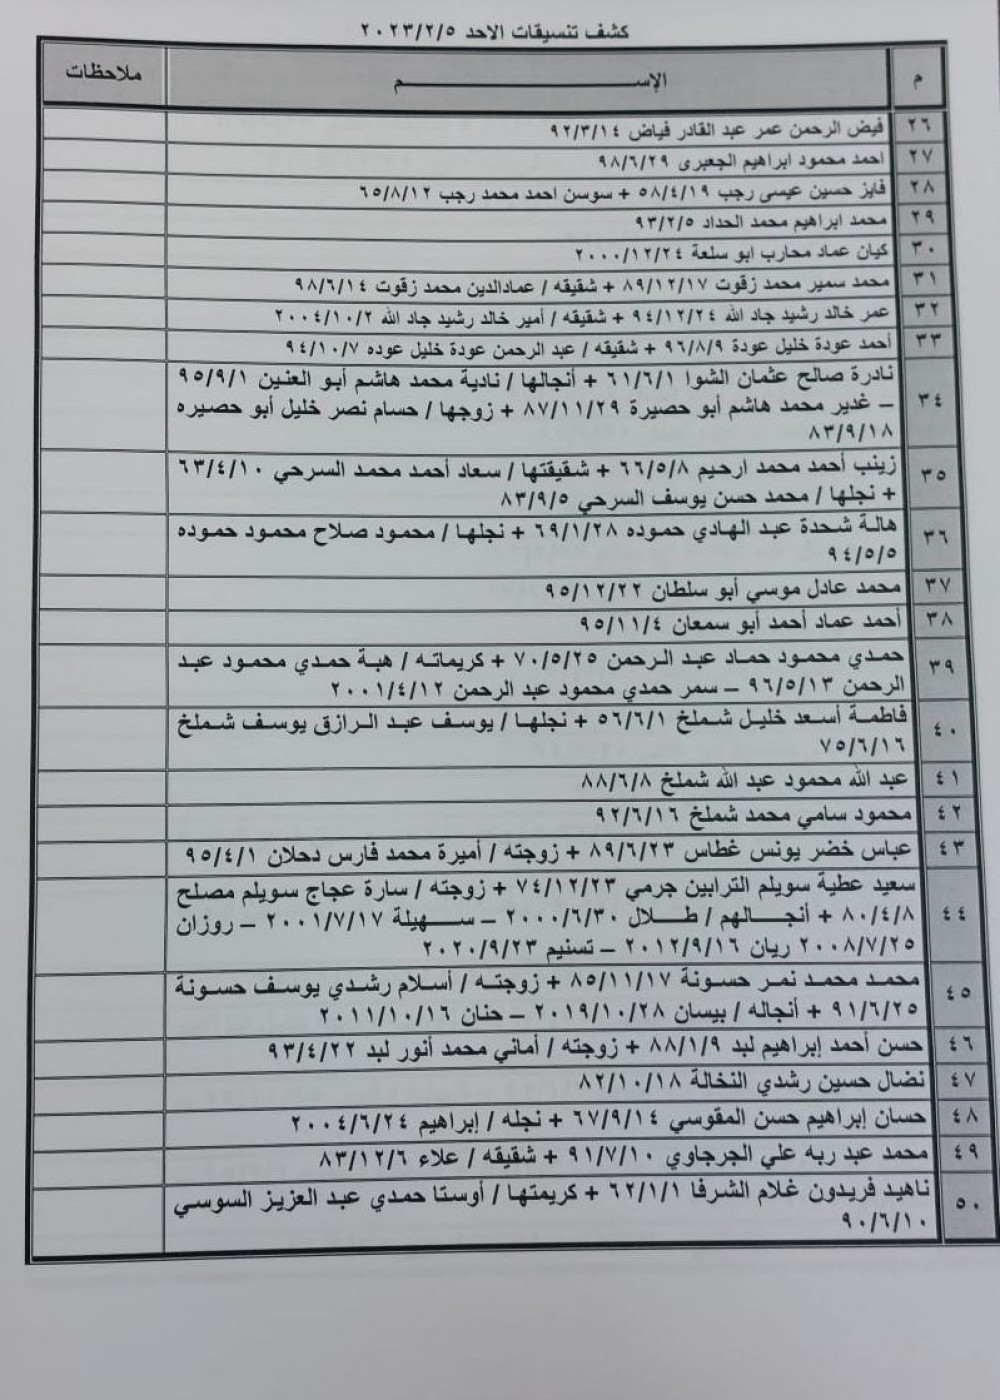 كشف تنسيقات الاحد ٢٠٢٣/٢/٥
م الإســـــم ملاحظات
٢٦ فيض الرحمن عمر عبد القادر فياض ٩٢/٣/١٤
٢٧ احمد محمود ابراهيم الجعبرى ٩٨/٦/٢٩
٢٨ فايز حسين عيسى رجب ٥٨/٤/١٩ + سوسن احمد محمد رجب ٦٥/٨/١٢
٢٩ محمد ابراهيم محمد الحداد ٩٣/٢/٥
٣٠ كيان عماد محارب ابو سلعة ٢٠٠٠/١٢/٢٤
٣١ محمد سمير محمد زقوت ٨٩/١٢/١٧ + شقيقه / عمادالدين محمد زقوت ٩٨/٦/١٤
٣٢ عمر خالد رشيد جاد الله ٩٤/١٢/٢٤ + شقيقه / أمير خالد رشيد جاد الله ٢٠٠٤/١٠/٢
٣٣ أحمد عودة خليل عودة ٩٦/٨/٩ + شقيقه / عبد الرحمن عودة خليل عوده ٩٤/١٠/٧
٣٤ نادرة صالح عثمان الشوا ٦١/٦/١ + أنجالها / نادية محمد هاشم أبو العنين ٩٥/٩/١
– غدير محمد هاشم أبو حصيرة ٨٧/١١/٢٩ + زوجها / حسام نصر خليل أبو حصيره
٨٣/٩/١٨
٣٥ زينب أحمد محمد ارحيم ٦٦/٥/٨ + شقيقتها / سعاد أحمد محمد السرحي ٦٣/٤/١٠
+ نجلها / محمد حسن يوسف السرحي ٨٣/٩/٥
٣٦ هالة شحدة عبد الهادي حموده ٦٩/١/٢٨ + نجلها / محمود صلاح محمود حموده
٩٤/٥/٥
٣٧ محمد عادل موسي أبو سلطان ٩٥/١٢/٢٢
٣٨ أحمد عماد أحمد أبو سمعان ٩٥/١١/٤
٣٩ حمدي محمود حماد عبد الرحمن ٧٠/٥/٢٥ + كريماته / هبة حمدي محمود عبد
الرحمن ٩٦/٥/١٣ – سمر حمدي محمود عبد الرحمن ٢٠٠١/٤/١٢
٤٠ فاطمة أسعد خليل شملخ ٥٦/٦/١ + نجلها / يوسف عبد الرازق يوسف شملخ
٧٥/٦/١٦
٤١ عبد الله محمود عبد الله شملخ ٨٨/٦/٨
٤٢ محمود سامي محمد شملخ ٩٢/٦/١٦
٤٣ عباس خضر يونس غطاس ٨٩/٦/٢٣ + زوجته / أميرة محمد فارس دحلان ٩٥/٤/١
٤٤ سعيد عطية سويلم الترابين جرمي ٧٤/١٢/٢٣ + زوجته / سارة عجاج سويلم مصلح
٨٠/٤/٨ + أنجالهم / طلال ٢٠٠٠/٦/٣٠ – سهيلة ٢٠٠١/٧/١٧ – روزان
٢٠٠٨/٧/٢٥ ريان ٢٠١٢/٩/١٦ – تسنيم ٢٠٢٠/٩/٢٣
٤٥ محمد محمد نمر حسونة ٨٥/١١/١٧ + زوجته / أسلام رشدي يوسف حسونة
٩١/٦/٢٥ + أنجاله / بيسان ٢٠١٩/١٠/٢٨ – حنان ٢٠١١/١٠/١٦
٤٦ حسن أحمد إبراهيم لبد ٨٨/١/٩ + زوجته / أماني محمد أنور لبد ٩٣/٤/٢٢
٤٧ نضال حسين رشدي النخالة ٨٢/١٠/١٨
٤٨ حسان إبراهيم حسن المقوسي ٦٧/٩/١٤ + نجله / إبراهيم ٢٠٠٤/٦/٢٤
٤٩ محمد عبد ربه علي الجرجاوي ٩١/٧/١٠ + شقيقه / علاء ٨٣/١٢/٦
٥٠ ناهيد فريدون غلام الشرفا ٦٢/١/١ + كريمتها / أوستا حمدي عبد العزيز السوسي
٩٠/٦/١٠